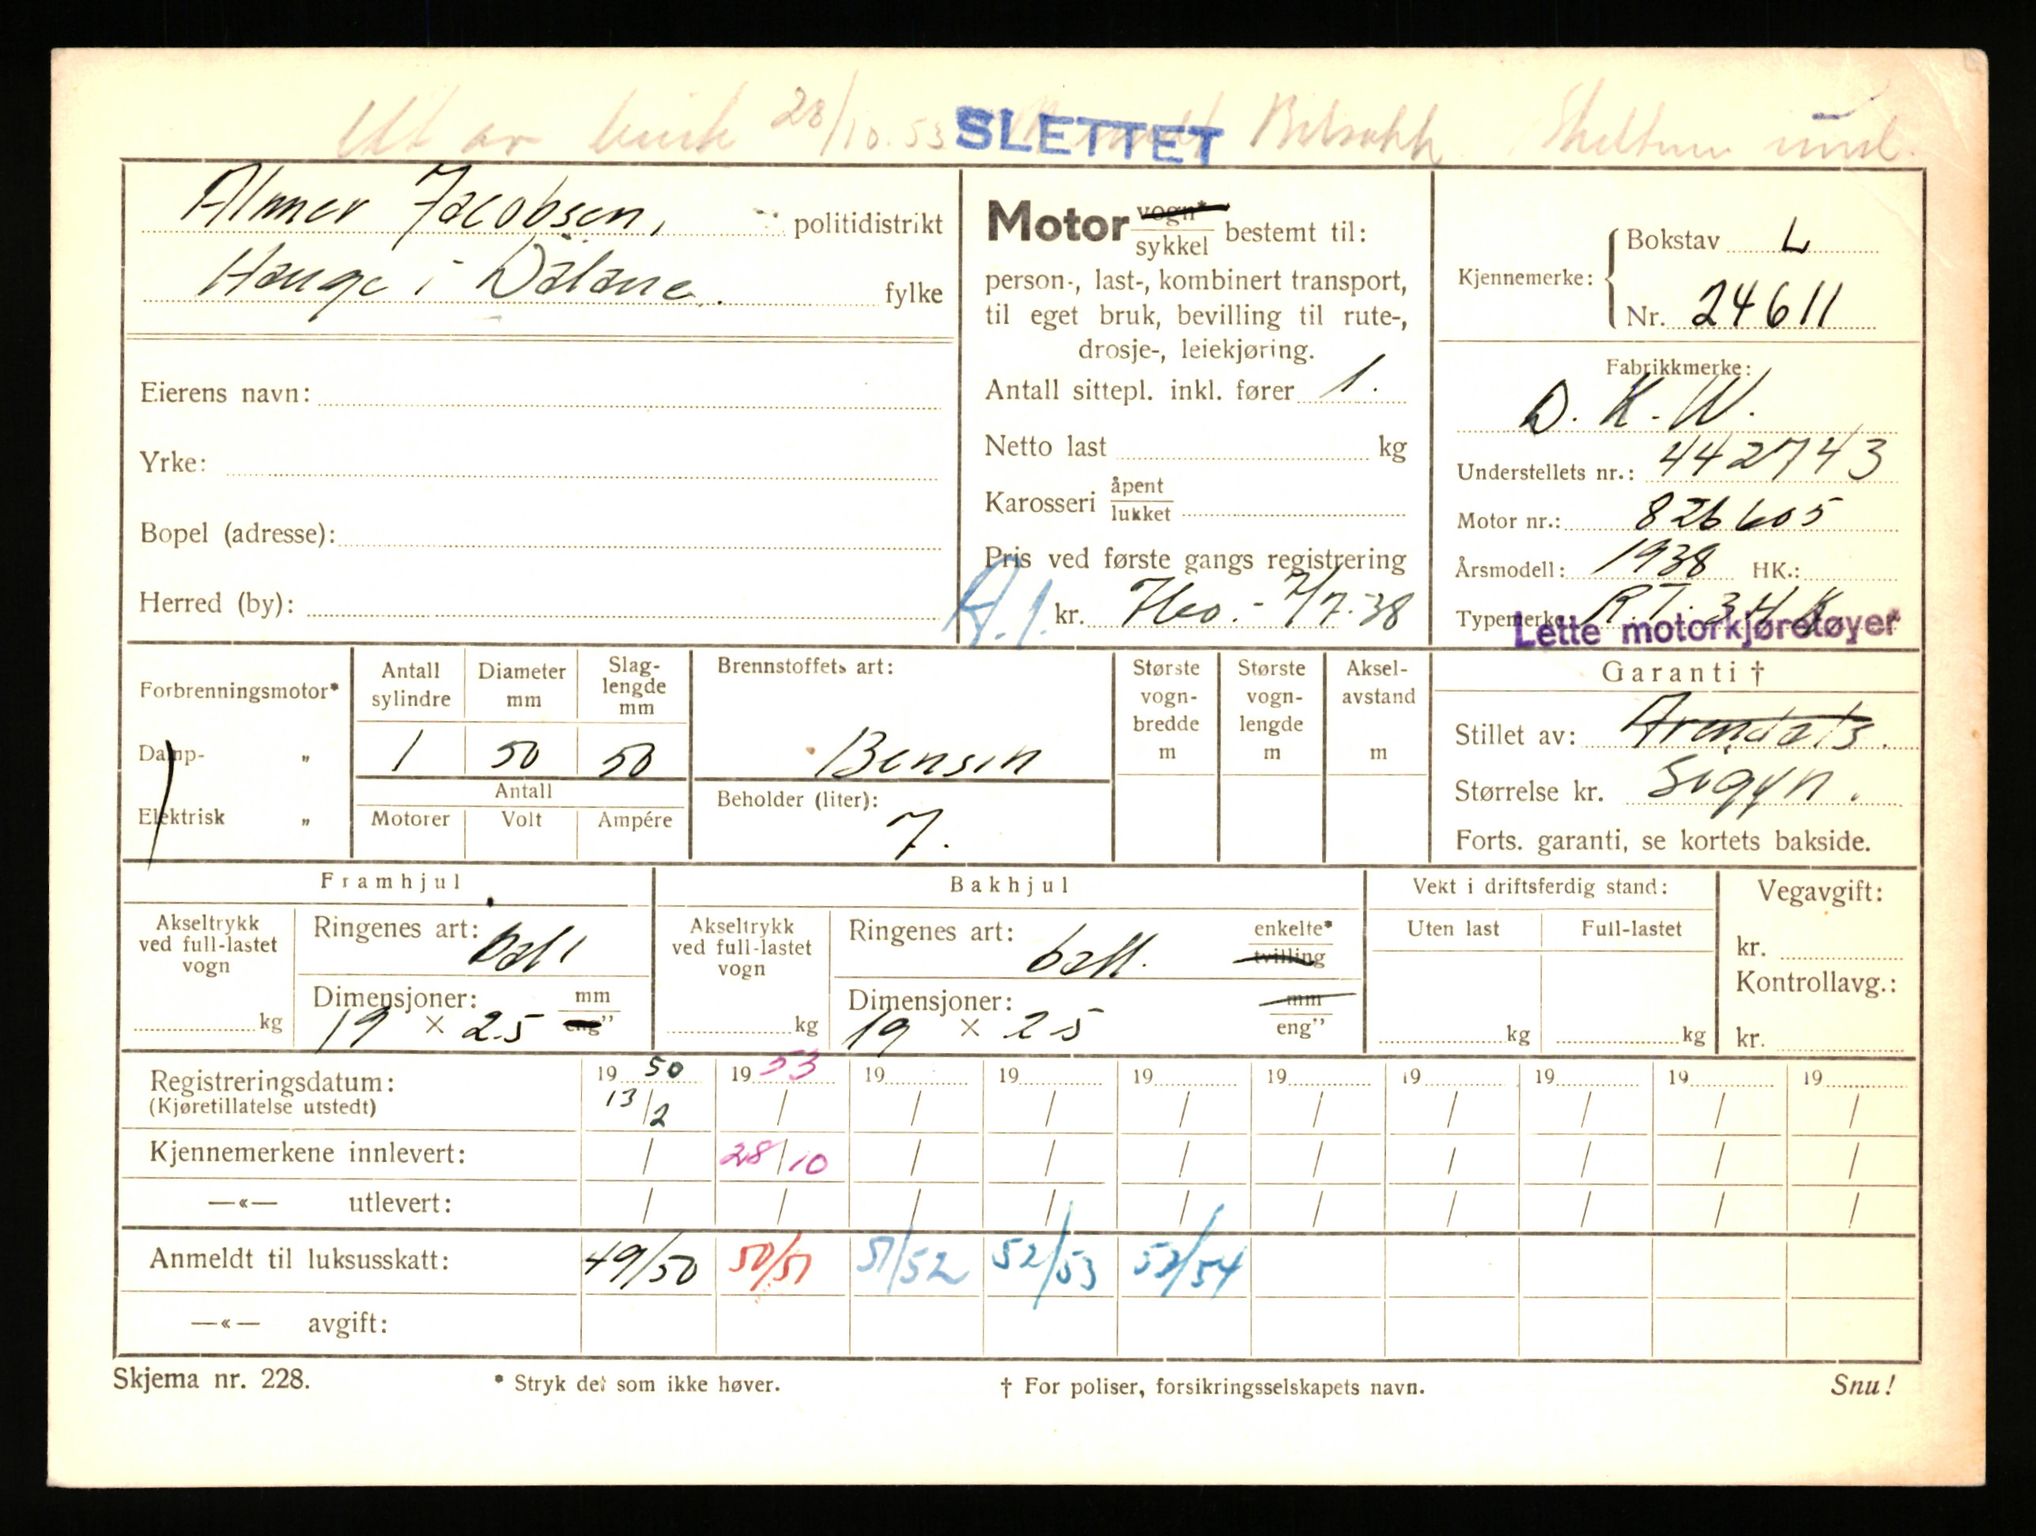 Ut av bruk 28/10.53 Bilsakk. Skiltene innl.
SLETTET
Almer Jacobsen, politidistrikt
Hauge i Dalane. fylke
Eierens navn:
Yrke:
Bopel (adresse):
Herred (by):
Motor vogn* sykkel bestemt til:
person-, last-, kombinert transport,
til eget bruk, bevilling til rute-,
drosje-, leiekjøring.
Antall sittepl. inkl. fører 1.
Netto last kg
Karosseri åpent lukket
Pris ved første gangs registrering
A.1. kr. 760.- 7/7.38
Kjennemerke: Bokstav L
Nr. 24611
Fabrikkmerke:
D. K. W.
Understellets nr.: 442743
Motor nr.: 826605
Årsmodell: 1938 HK.:
Typemerke R.T. 3 H K
Lette motorkjøretøyer
Forbrenningsmotor*
Damp- „
Elektrisk „
Antall sylindre
Diameter mm
Slag-lengde mm
1 50 50
Antall
Motorer Volt Ampére
Brennstoffets art:
Bensin
Beholder (liter):
7.
Største vogn-bredde m
Største vogn-lengde m
Aksel-avstand m
Garanti †
Stillet av: Arendals
Størrelse kr. Sigyn.
Forts. garanti, se kortets bakside.
Framhjul
Akseltrykk ved full-lastet vogn
kg
Ringenes art: ball
Dimensjoner: mm eng”
19 × 2.5
Bakhjul
Akseltrykk ved full-lastet vogn
kg
Ringenes art: ball. enkelte* tvilling
Dimensjoner: mm eng”
19 × 2.5
Vekt i driftsferdig stand:
Uten last Full-lastet
kg kg
Vegavgift:
kr.
Kontrollavg.:
kr.
Registreringsdatum: 19 50 19 53 19 19 19 19 19 19 19 19
(Kjøretillatelse utstedt) 13/2 / / / / / / / / /
Kjennemerkene innlevert: / 28/10 / / / / / / / /
—«— utlevert: / / / / / / / / / /
Anmeldt til luksusskatt: 49/50 50/51 51/52 52/53 53/54
—«— avgift:
Skjema nr. 228. * Stryk det som ikke høver. † For poliser, forsikringsselskapets navn. Snu!